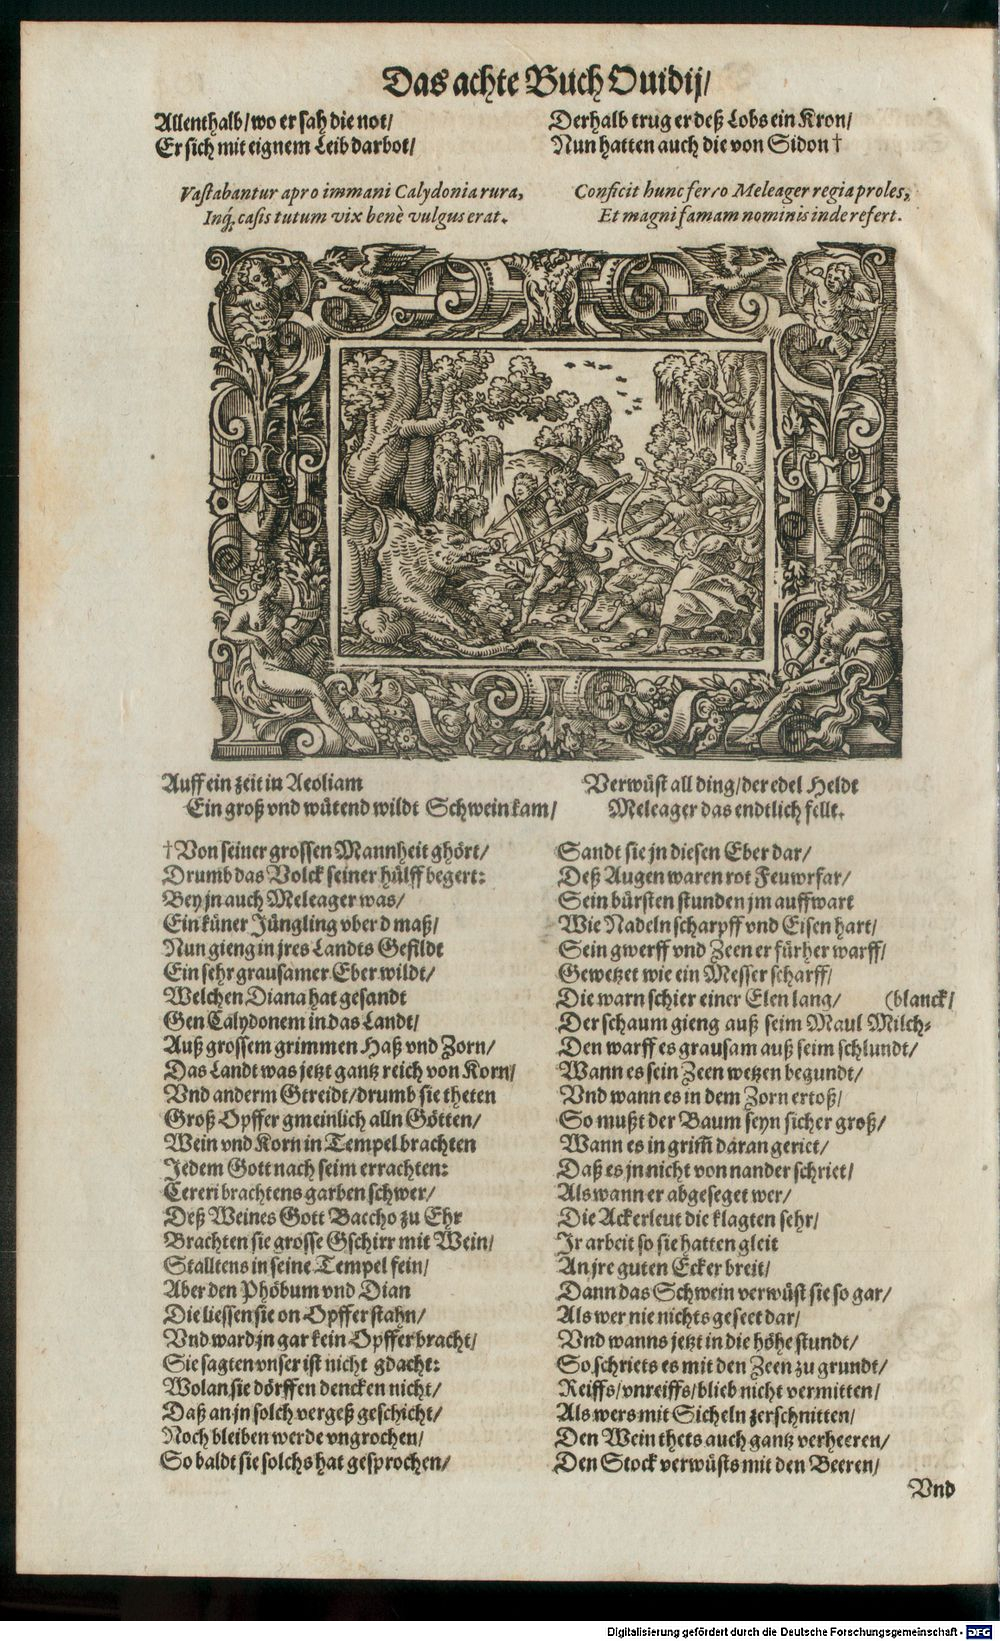 Das achte Buch Ouidij/
Allenthalb/wo er sah die not/
Er sich mit eignem Leib darbot/
Derhalb trug er deß Lobs ein Kron/
Nun hatten auch die von Sidon †
Vastabantur apro immani Calydonia rura,
Inq́; casis tutum vix benè vulgus erat.
Conficit hunc ferro Meleager regia proles,
Et magni famam nominis inde refert.
Auff ein zeit in Aeoliam
Ein groß vnd wütend wildt Schwein kam/
Verwüst all ding/der edel Heldt
Meleager das endtlich fellt.
†Von seiner grossen Mannheit ghört/
Drumb das Volck seiner hülff begert:
Bey jn auch Meleager was/
Ein küner Jüngling vber d maß/
Nun gieng in jres Landts Gefildt
Ein sehr grausamer Eber wildt/
Welchen Diana hat gesandt
Gen Calydonem in das Landt/
Auß grossem grimmen Haß vnd Zorn/
Das Landt was jetzt gantz reich von Korn/
Vnd anderm Gtreidt/drumb sie theten
Groß Opffer gmeinlich alln Götten/
Wein vnd Korn in Tempel brachten
Jedem Gott nach seim errachten:
Cereri brachtens garben schwer/
Deß Weines Gott Baccho zu Ehr
Brachten sie grosse Gschirr mit Wein/
Stalltens in seine Tempel fein/
Aber den Phöbum vnd Dian
Die liessen sie on Opffer stahn/
Vnd ward jn gar kein Opffer bracht/
Sie sagten vnser ist nicht gdacht:
Wolan sie dörffen dencken nicht/
Daß an jn solch vergeß geschicht/
Noch bleiben werde vngrochen/
So baldt sie solchs hat gesprochen/
Sandt sie jn diesen Eber dar/
Deß Augen waren rot Feuwrfar/
Sein bürsten stunden jm auffwart
Wie Nadeln scharpff vnd Eisen hart/
Sein gwerff vnd Zeen er fürher warff/
Gewetzet wie ein Messer scharff/
Die warn schier einer Elen lang/ (blanck/
Der schaum gieng auß seim Maul Milch-
Den warff es grausam auß seim schlundt/
Wann es sein Zeen wetzen begundt/
Vnd wann es in dem Zorn ertoß/
So mußt der Baum seyn sicher groß/
Wann es in grim̃ daran geriet/
Daß es jn nicht von nander schriet/
Als wann er abgeseget wer/
Die Ackerleut die klagten sehr/
Jr arbeit so sie hatten gleit
An jre guten Ecker breit/
Dann das Schwein verwüst sie so gar/
Als wer nie nichts geseet dar/
Vnd wanns jetzt in die höhe stundt/
So schriets es mit den Zeen zu grundt/
Reiffs/vnreiffs/blieb nicht vermitten/
Als wers mit Sicheln zerschnitten/
Den Wein thets auch gantz verheeren/
Den Stock verwüsts mit den Beeren/
Vnd
Digitalisierung gefördert durch die Deutsche Forschungsgemeinschaft - DFG